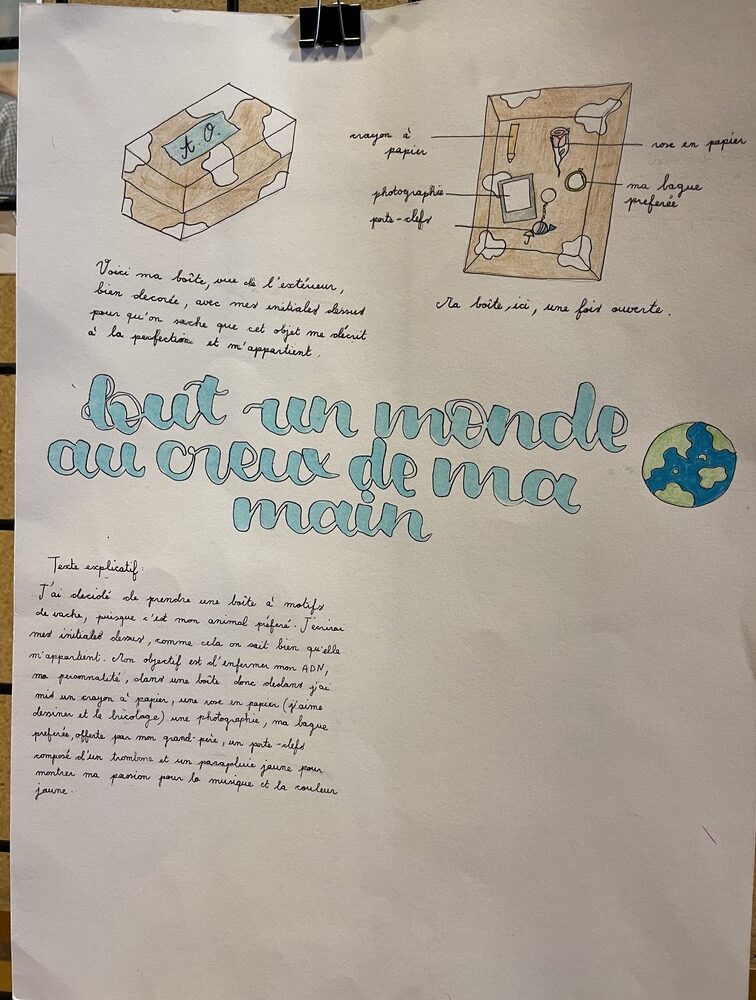 A. O.
Voici ma boîte, vue de l'extérieur,
bien decorée, avec mes initiales dessus
pour qu'on sache que cet objet me décrit
à la perfection et m'appartient.
crayon à
papier
photographie
porte-clefs
rose en papier
ma bague
preferée
Ma boîte, ici, une fois ouverte.
tout un monde
au creux de ma
main
Texte explicatif:
J'ai decidé de prendre une boîte à motifs
de vache, puisque c'est mon animal préferé. J'écrirai
mes initiales dessus, comme cela on sait bien qu'elle
m'appartient. Mon objectif est d'enfermer mon ADN,
ma personnalité, dans une boîte donc dedans j'ai
mis un crayon à papier, une rose en papier (j'aime
dessiner et le bricolage) une photographie, ma bague
preferée, offerte par mon grand-père, un porte-clefs
composé d'un trombone et un parapluie jaune pour
montrer ma passion pour la musique et la couleur
jaune.